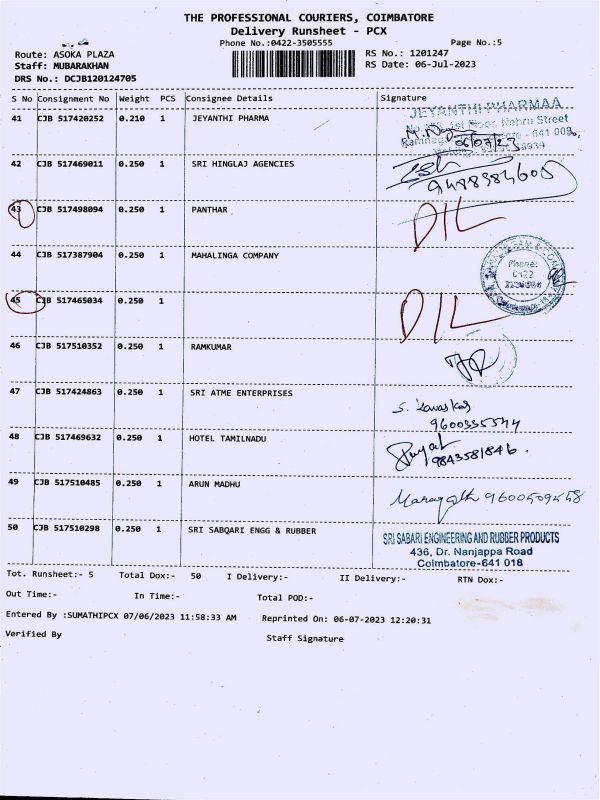 THE PROFESSIONAL COURIERS, COIMBATORE
Delivery Runsheet - PCX
Phone No.:0422-3505555 Page No.:5
Route: ASOKA PLAZA RS No.: 1201247
Staff: MUBARAKHAN RS Date: 06-Jul-2023
DRS No.: DCJB120124705
S No Consignment No Weight PCS Consignee Details Signature
41 CJB 517420252 0.210 1 JEYANTHI PHARMA
JEYANTHI PHARMAA
1st Floor, Nehru Street
- 641 009.
06/07/23
42 CJB 517469011 0.250 1 SRI HINGLAJ AGENCIES
43 CJB 517498094 0.250 1 PANTHAR D/L
44 CJB 517387904 0.250 1 MAHALINGA COMPANY
Phone:
0422
45 CJB 517465034 0.250 1 D/L
46 CJB 517510352 0.250 1 RAMKUMAR
47 CJB 517424863 0.250 1 SRI ATME ENTERPRISES
48 CJB 517469632 0.250 1 HOTEL TAMILNADU
9843581846.
49 CJB 517510485 0.250 1 ARUN MADHU
50 CJB 517510298 0.250 1 SRI SABQARI ENGG & RUBBER
SRI SABARI ENGINEERING AND RUBBER PRODUCTS
436, Dr. Nanjappa Road
Coimbatore-641 018
Tot. Runsheet:- 5 Total Dox:- 50 I Delivery:- II Delivery:- RTN Dox:-
Out Time:- In Time:- Total POD:-
Entered By :SUMATHIPCX 07/06/2023 11:58:33 AM Reprinted On: 06-07-2023 12:20:31
Verified By Staff Signature